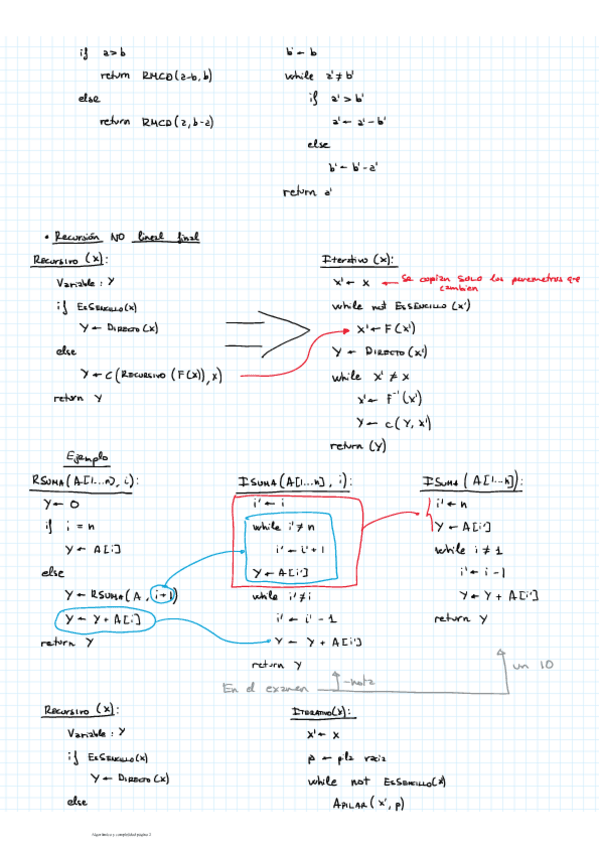 if a>b
return RMCD(a-b,b)
else
return RMCD(a,b-a)
b'← b
while a'≠b'
if a'>b'
a'← a'-b'
else
b'← b'-a'
return a'
• Recursión NO lineal final
Recursivo (x):
Variable: Y
if EsSencillo(x)
Y ← Directo(x)
else
Y ← C(Recursivo (F(x)),x)
return Y
Iterativo (x):
x'← x ← Se copian SOLO los parametros que cambien
while not EsSencillo(x')
x'← F(x')
Y ← Directo(x')
while x'≠x
x'← F⁻¹(x')
Y ← C(Y,x')
return (Y)
Ejemplo
RSUMA(A[1...n], i):
Y ← 0
if i = n
Y ← A[i]
else
Y ← RSUMA(A, i+1)
Y ← Y + A[i]
return Y
ISUMA(A[1...n], i):
i'← i
while i'≠n
i'← i'+1
Y ← A[i']
while i'≠i
i'← i'-1
Y ← Y + A[i']
return Y
ISUMA (A[1..n]):
i'← n
Y ← A[i']
while i ≠ 1
i'← i-1
Y ← Y + A[i']
return Y
En el examen
-nota
un 10
Recursivo (x):
Variable: Y
if EsSencillo(x)
Y ← Directo(x)
else
Iterativo(x):
x'← x
p ← pila vacia
while not EsSencillo(x)
Apilar(x',p)
Algoritmia y complejidad página 2